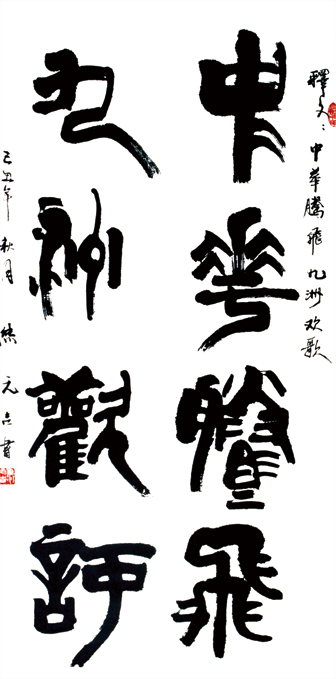 釋文：中華騰飛九洲欢歌
中華騰飛
九州歡訶
己丑年秋月 元 書